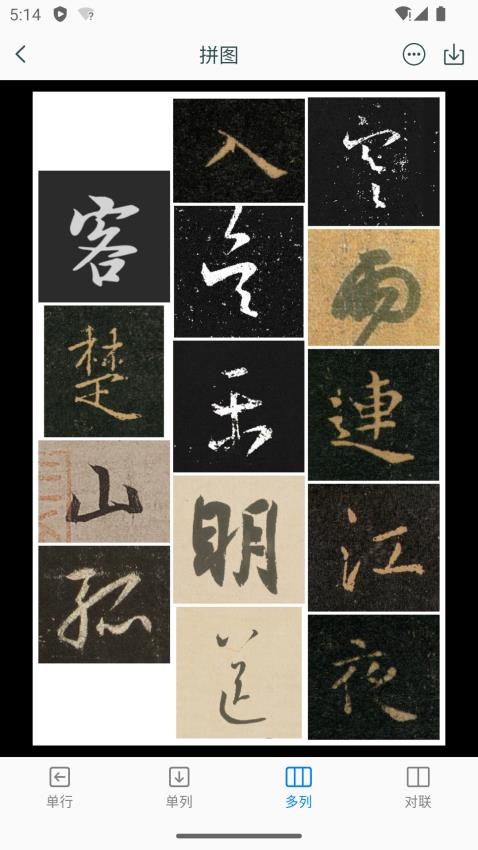 5:14
拼图
寒雨連江夜
入吳平明送
客楚山孤
单行
单列
多列
对联